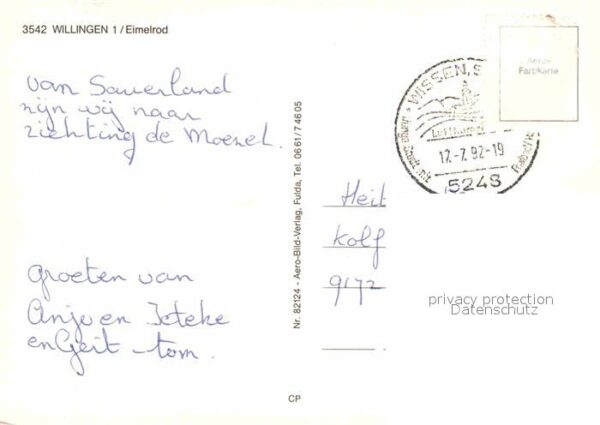 3542 WILLINGEN 1 / Eimelrod
van Sauerland
zijn wij naar
richting de Moezel.
groeten van
Anja en Ieteke
en Geit - tom.
Nr. 82124 - Aero-Bild-Verlag, Fulda, Tel. 0661/7 46 05
CP
Aero-
Farbkarte
WISSEN, S
Luftkurort
12.-7. 92-19
5248
Heit
kolf
9172
privacy protection
Datenschutz